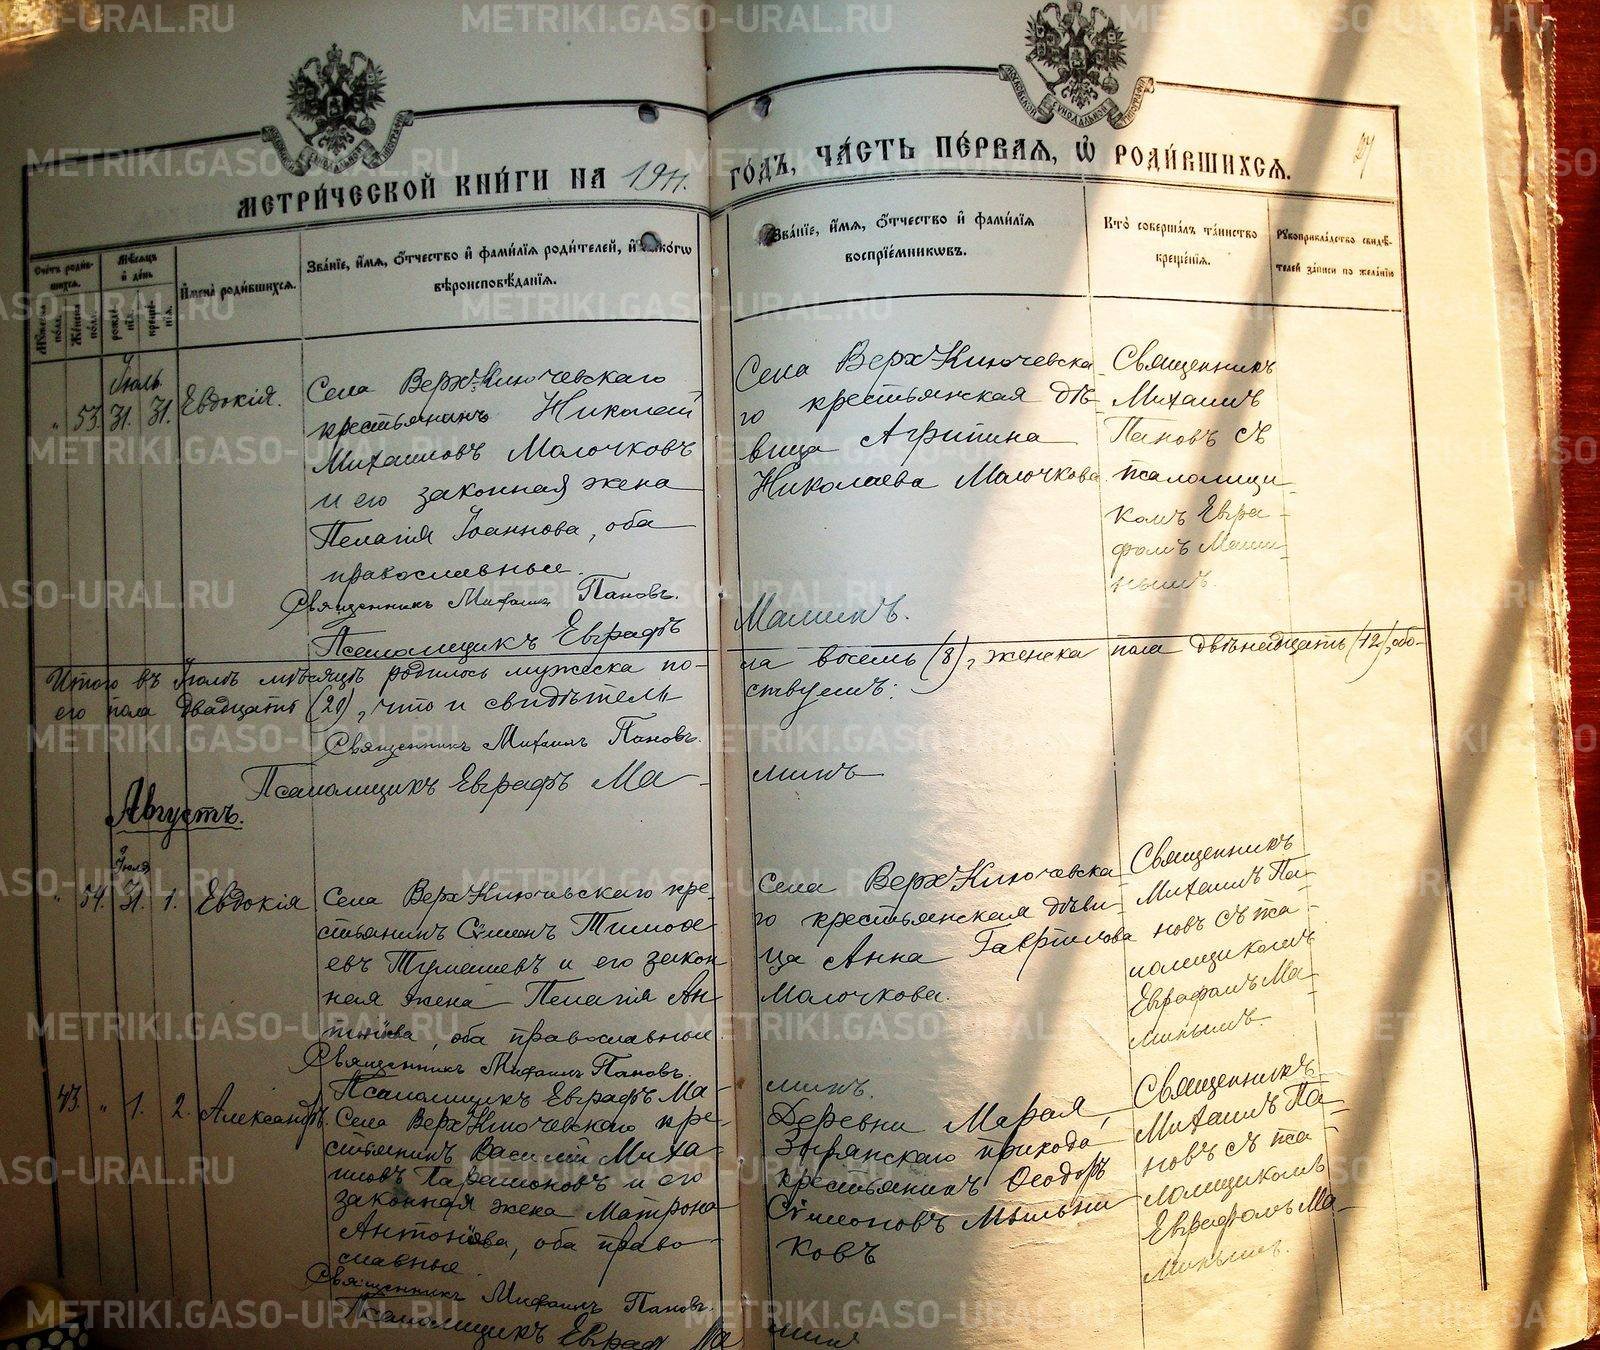 МЕТРИ́ЧЕСКОЙ КНИ́ГИ НА 1911. ГО́ДЪ, ЧА́СТЬ ПЕ́РВАЯ, Ѽ РОДИ́ВШИХСЯ.
Счетъ роди́вшихся.
Му́жеска по́лъ.
Же́нска по́лъ.
Мѣ́сяцъ и́ де́нь
рожде́нїя.
креще́нїя.
И҆мена̀ роди́вшихся.
Зва́нїе, и҆́мя, ѻ҆́тчество и҆ фами́лїя роди́телей, и҆ како́гѡ
вѣроисповѣ́данїя.
Зва́нїе, и҆́мя, ѻ҆́тчество и҆ фами́лїя
воспрїе́мниковъ.
Кто̀ соверша́лъ та́инство
креще́нїя.
Рꙋкоприкла́дство свидѣ́телей за́писи по жела́нїю
Іюль
" 53. 31. 31. Евдокія.
Села Верх-Ключевскаго
крестьянинъ Николай
Михаиловъ Молочковъ
и его законная жена
Пелагія Іоаннова, оба
православные.
Священникъ Михаилъ Пановъ.
Псаломщикъ Евграфъ Малинъ.
Села Верх-Ключевска
го крестьянская дѣ-
вица Агрипина
Николаева Молочкова.
Священникъ
Михаилъ
Пановъ съ
псаломщи-
комъ Евгра-
фомъ Мали-
нымъ.
Итого въ Іюлѣ мѣсяцѣ родилось мужеска по-ла восемь (8), женска пола двѣнадцать (12), обо-
его пола двадцать (20), что и свидѣтель-ствуемъ:
Священникъ Михаилъ Пановъ.
Псаломщикъ Евграфъ Ма-линъ
Августъ.
Іюля
" 54. 31. 1. Евдокія
Села Верх-Ключевскаго кре-
стьянинъ Сѵмеонъ Тимоѳе
евъ Турышевъ и его закон
ная жена Пелагія Ан
типова, оба православные.
Священникъ Михаилъ Пановъ.
Псаломщикъ Евграфъ Ма-линъ.
Села Верх-Ключевска
го крестьянская дѣви-
ца Анна Гаврилова
Молочкова.
Священникъ
Михаилъ Па-
новъ съ пса-
ломщикомъ
Евграфомъ Ма-
линымъ.
43. " 1. 2. Александръ.
Села Верх-Ключевскаго кре-
стьянинъ Василій Миха-
иловъ Парамоновъ и его
законная жена Матрона
Антонова, оба право-
славные.
Священникъ Михаилъ Пановъ.
Псаломщикъ Евграфъ Малинъ
Деревни Марая,
Зырянскаго прихода
крестьянинъ Ѳеодоръ
Сѵмеоновъ Мыльни
ковъ
Священникъ
Михаилъ Па-
новъ съ пса-
ломщикомъ
Евграфомъ Ма-
линымъ.
METRIKI.GASO-URAL.RU